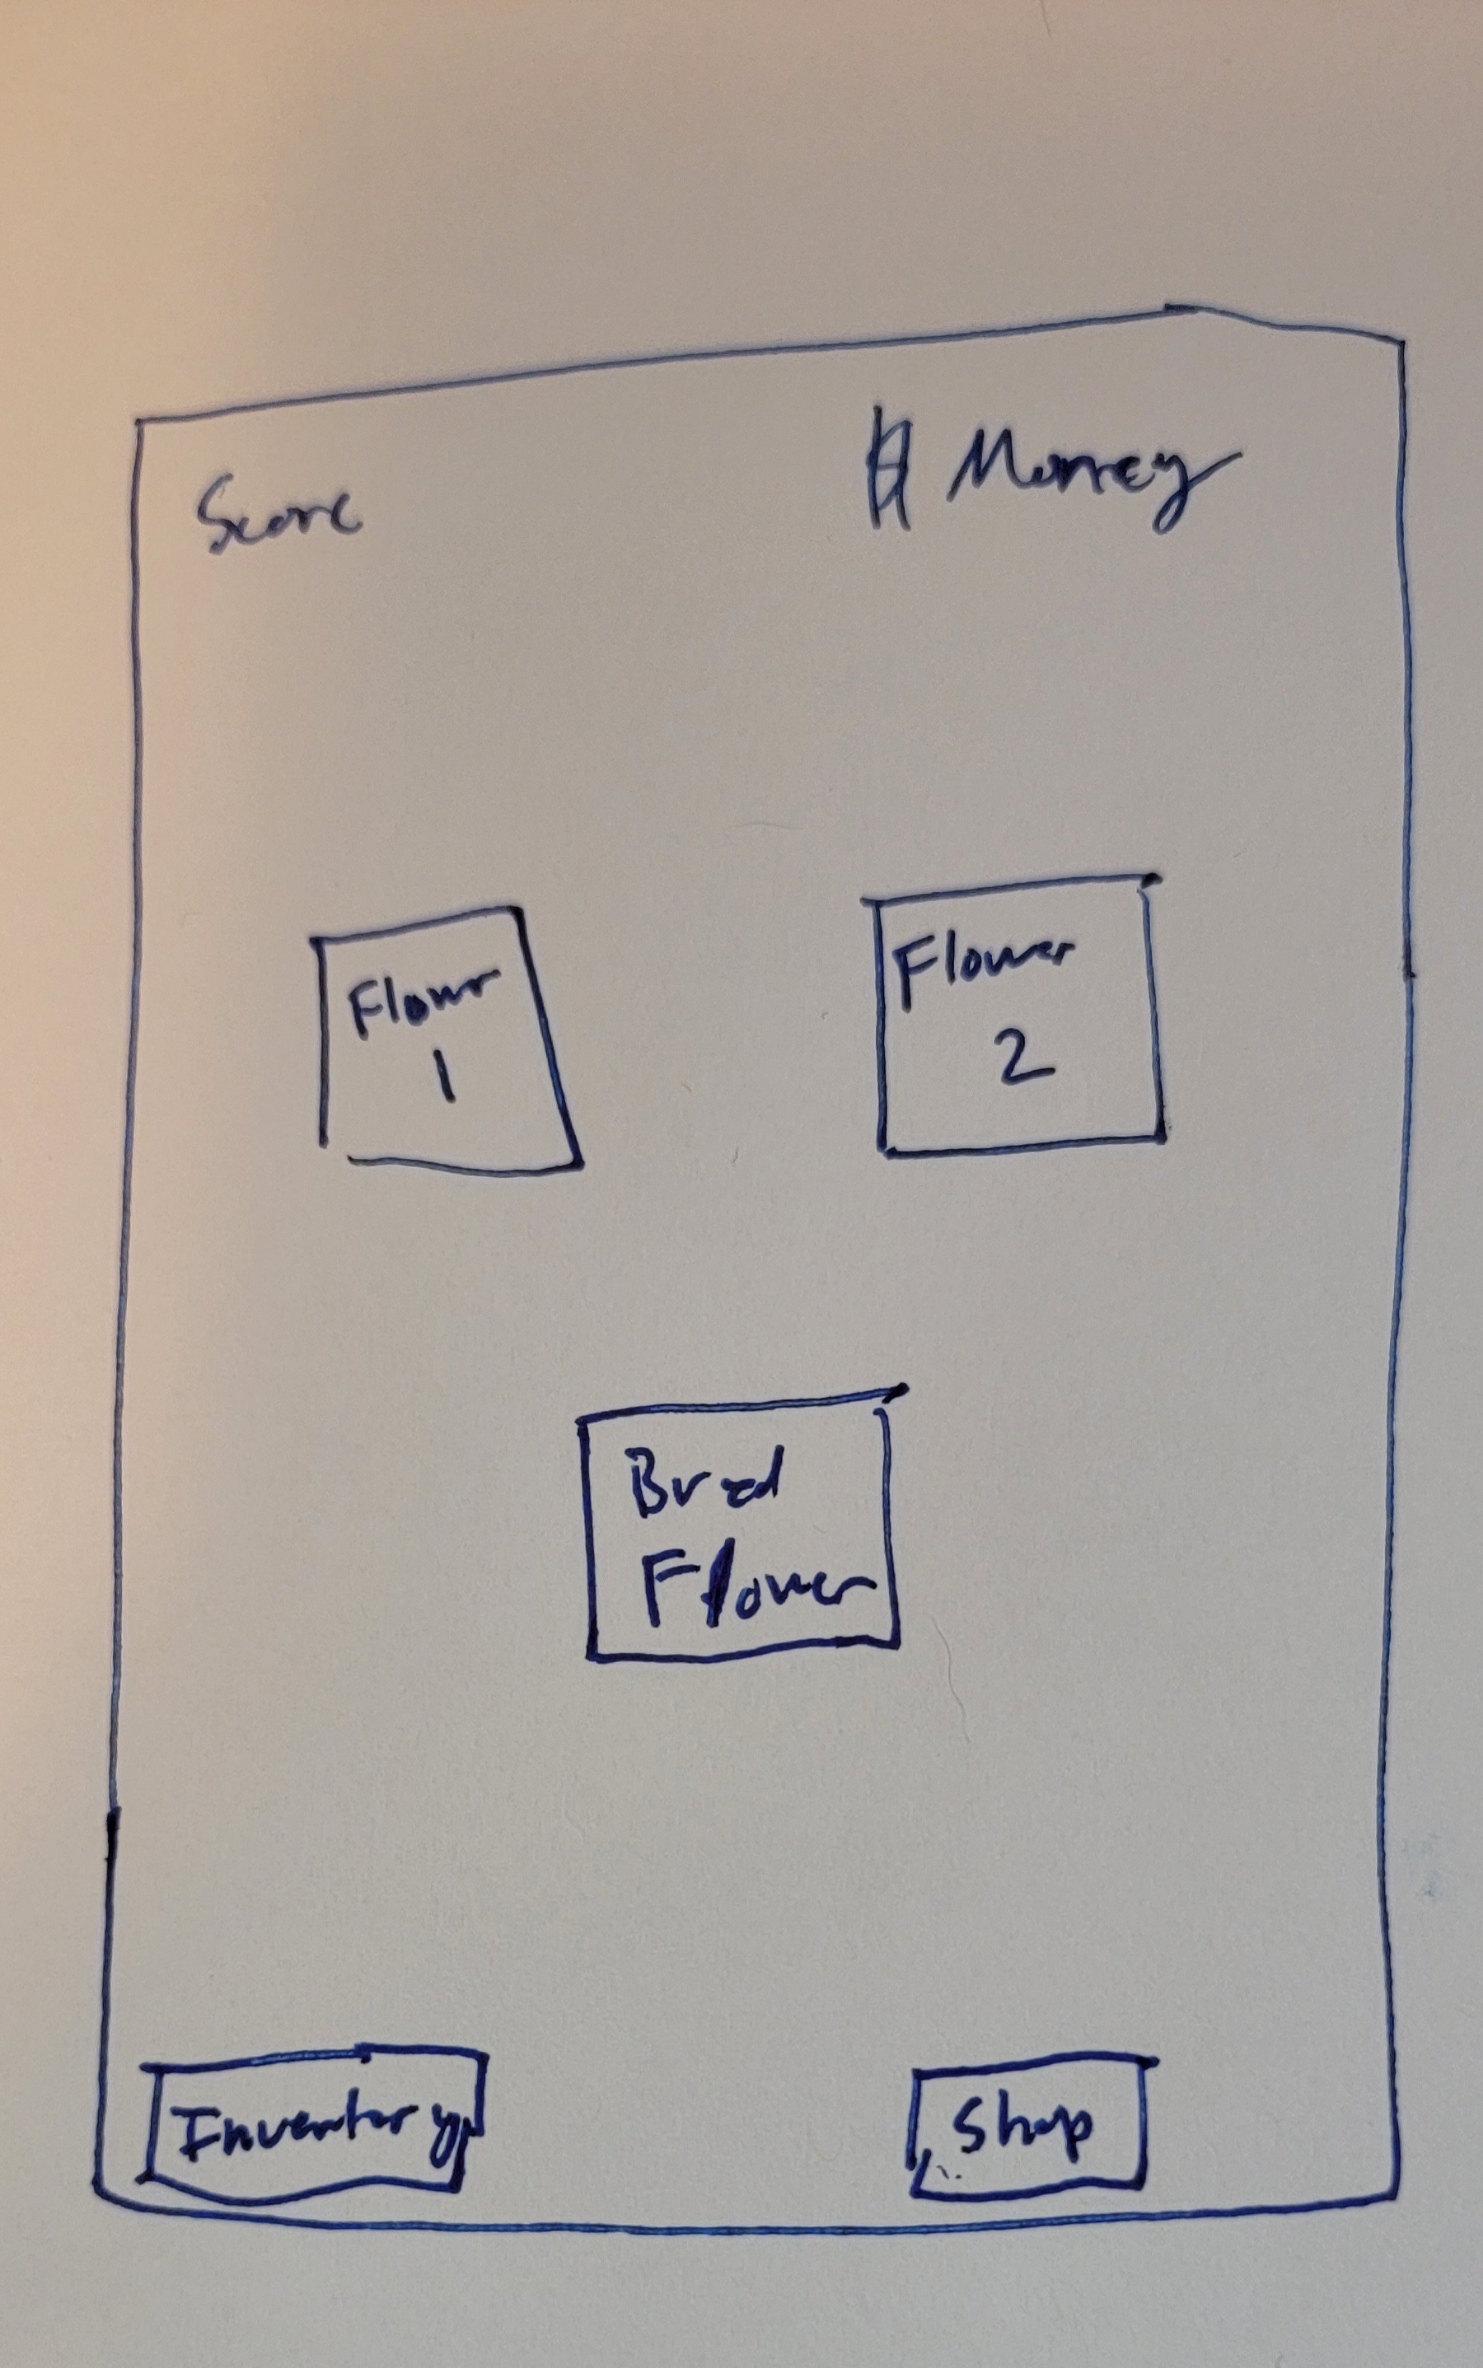 Score
$ Money
Flower
1
Flower
2
Bred
Flower
Inventory
Shop